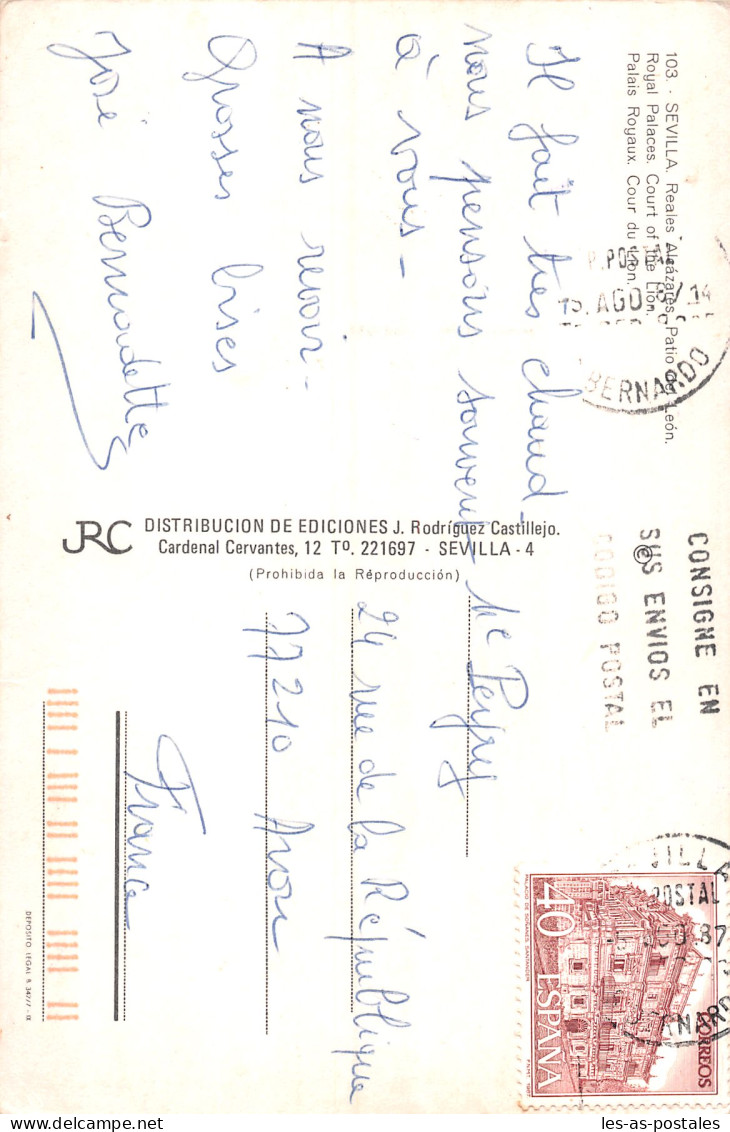 103. - SEVILLA. Reales Alcázares. Patio del León.
Royal Palaces. Court of the Lion.
Palais Royaux. Cour du Lion.
Il fait très chaud -
nous pensons souvent
à vous -
A nous revoir -
Grosses bises
José Bernadette
JRC DISTRIBUCION DE EDICIONES J. Rodríguez Castillejo.
Cardenal Cervantes, 12 Tº. 221697 - SEVILLA - 4
(Prohibida la Réproducción)
BERNARDO
AGO 87
CONSIGNE EN
SUS ENVIOS EL
CODIGO POSTAL
POSTAL
87
40 ESPAÑA
CORREOS
24 rue de la République
77210 Avon
France
DEPOSITO LEGAL B. 34277 - IX
www.les-as-postales.com